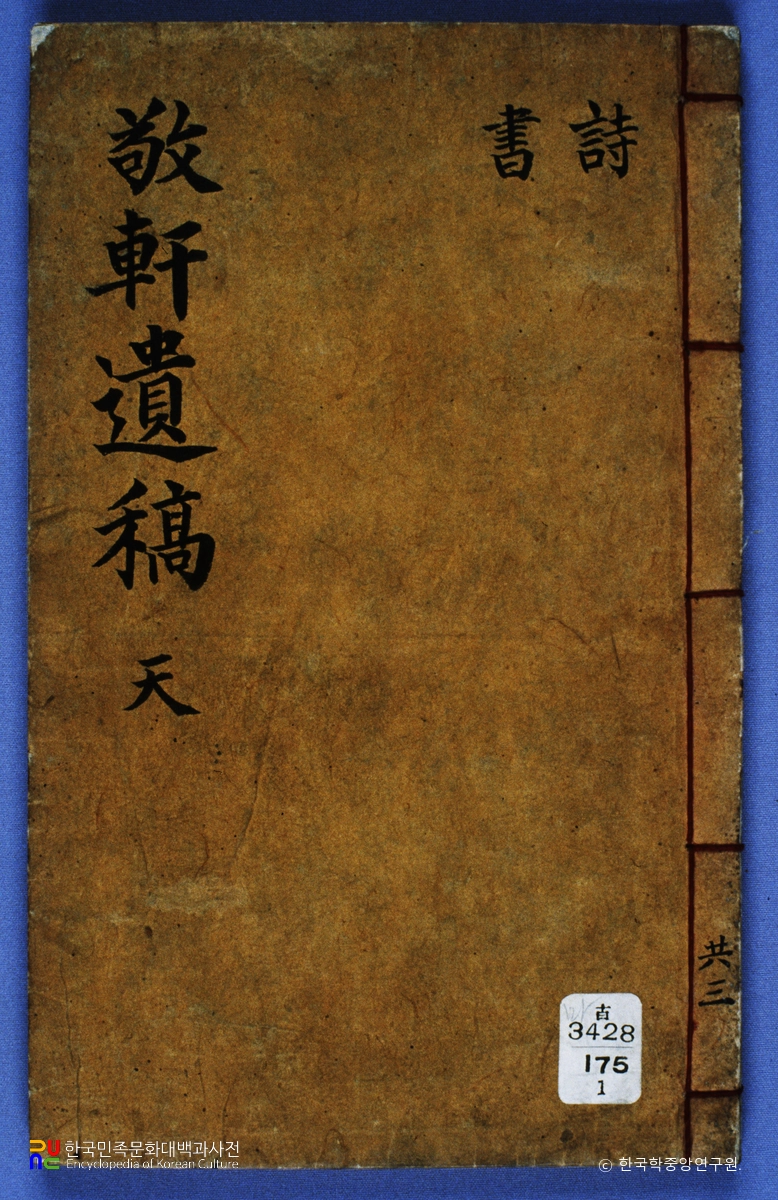 詩
書
敬軒遺稿 天
共三
古
3428
175
1
한국민족문화대백과사전
Encyclopedia of Korean Culture
© 한국학중앙연구원